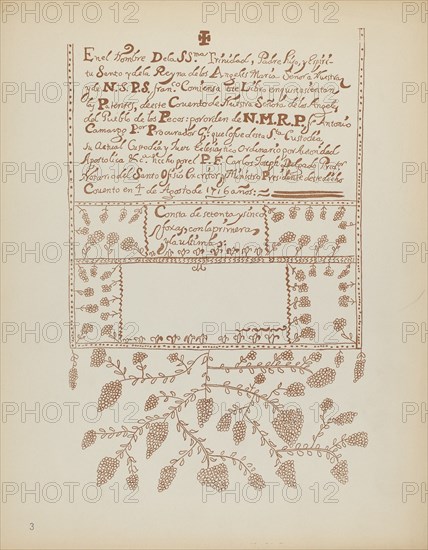 En el Nombre De la SSma Trinidad, Padre Hijo, y Espiri
tu Santo y de la Reyna de los Angeles Maria Señora Nuestra
y de N.S.P.S. Franco Comiensa este Libro en que se
los Prteriores, de este Convento de Nuestra Señora de los Angeles
del Pueblo de los Pecos: por orden de N.M.R.P. Fr. Antonio
Camargo Por Procurador Gl. que fue de esta Sta Custodia,
Su Actual Custodio y Juez Eclesiastico Ordinario por Autoridad
Apostolica &c. hecho por el P.F. Carlos Joseph Delgado Predor
Notario del Santo Oficio Ministro Presidente de este dicho
Convento en 1 de Agosto de 1716 años:
Consta de setenta y sinco
foxas, con la primera
y la ultima:
3
PHOTO 12